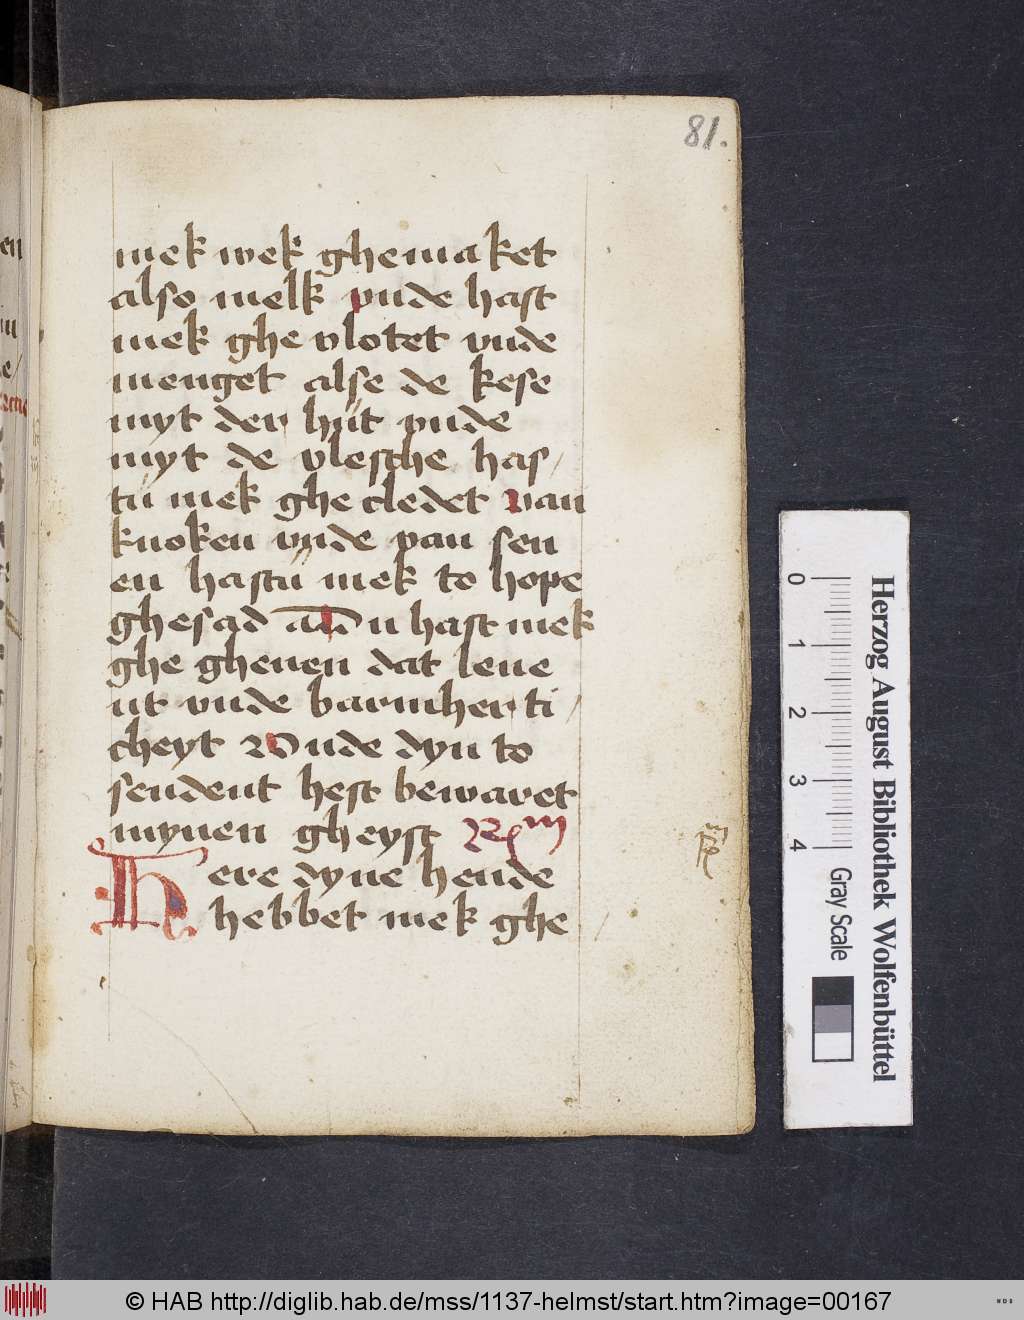 81.
mek wek ghemaket
also melk vnde hast
mek ghe vlotet vnde
menget alse de kese
myt der hut vnde
myt de vlesche has/
tu mek ghe cledet van
knoken vnde van sen
en hastu mek to hope
ghesad du hast mek
ghe gheuen dat leue
nt vnde barmherti/
cheyt Vnde dyn to
sendent hest bewaret
mynen gheyst
Here dyne hende
hebbet mek ghe
0 1 2 3 4
Herzog August Bibliothek Wolfenbüttel
Gray Scale
© HAB http://diglib.hab.de/mss/1137-helmst/start.htm?image=00167